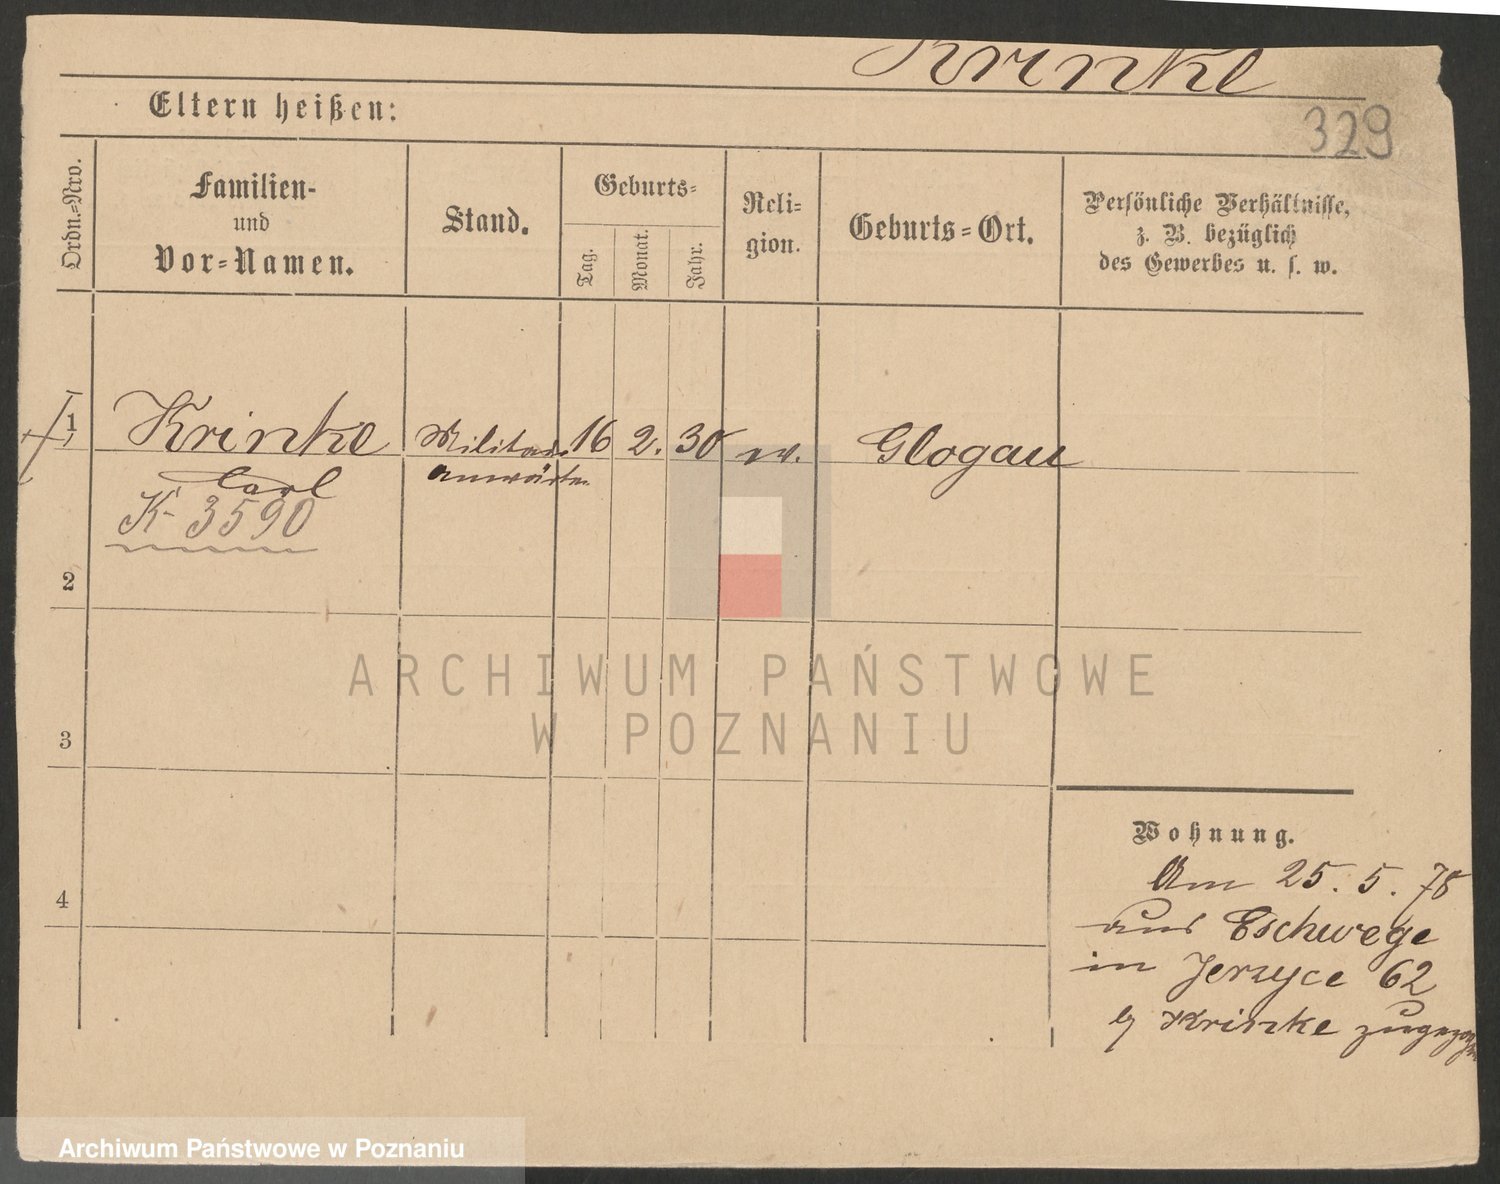 Krinke
329
Eltern heißen:
Ordn.-Nro.
Familien-
und
Vor-Namen.
Stand.
Geburts-
Tag.
Monat.
Jahr.
Reli-
gion.
Geburts-Ort.
Persönliche Verhältnisse,
z. B. bezüglich
des Gewerbes u. s. w.
1
Krinke
Carl
K- 3590
Militair
anwärter
16
2.
30
ev.
Glogau
2
3
4
ARCHIWUM PAŃSTWOWE
W POZNANIU
Wohnung.
Am 25. 5. 78
aus Eschwege
in Jerzyce 62
Krinke zugezogen
Archiwum Państwowe w Poznaniu